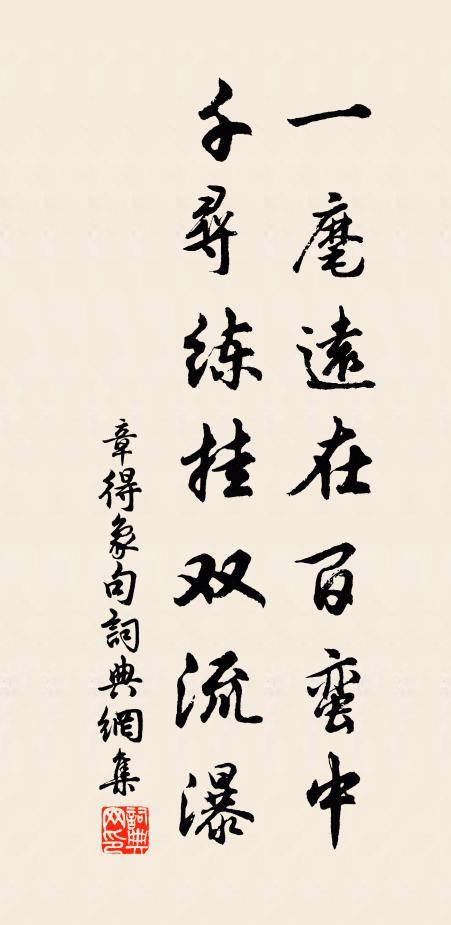 一麾遠在百蛮中
千尋练挂双流瀑
章得象句詞典網集
詞典
网印